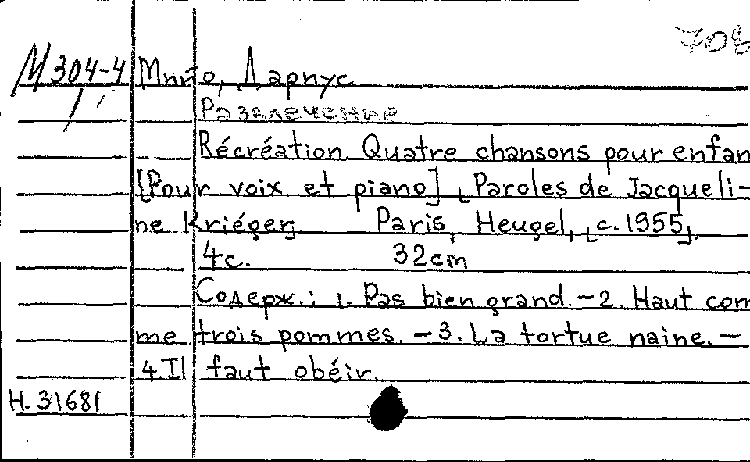 708
М 304-4 Мийо, Дариус
1
Развлечение
Récréation. Quatre chansons pour enfan
[Pour voix et piano]. Paroles de Jacqueli-
ne Kriéger. Paris, Heugel, [c. 1955].
4с. 32cm
Содерж.: 1. Pas bien grand. – 2. Haut com
me trois pommes. – 3. La tortue naine. –
4. Il faut obéir.
Н. 31681